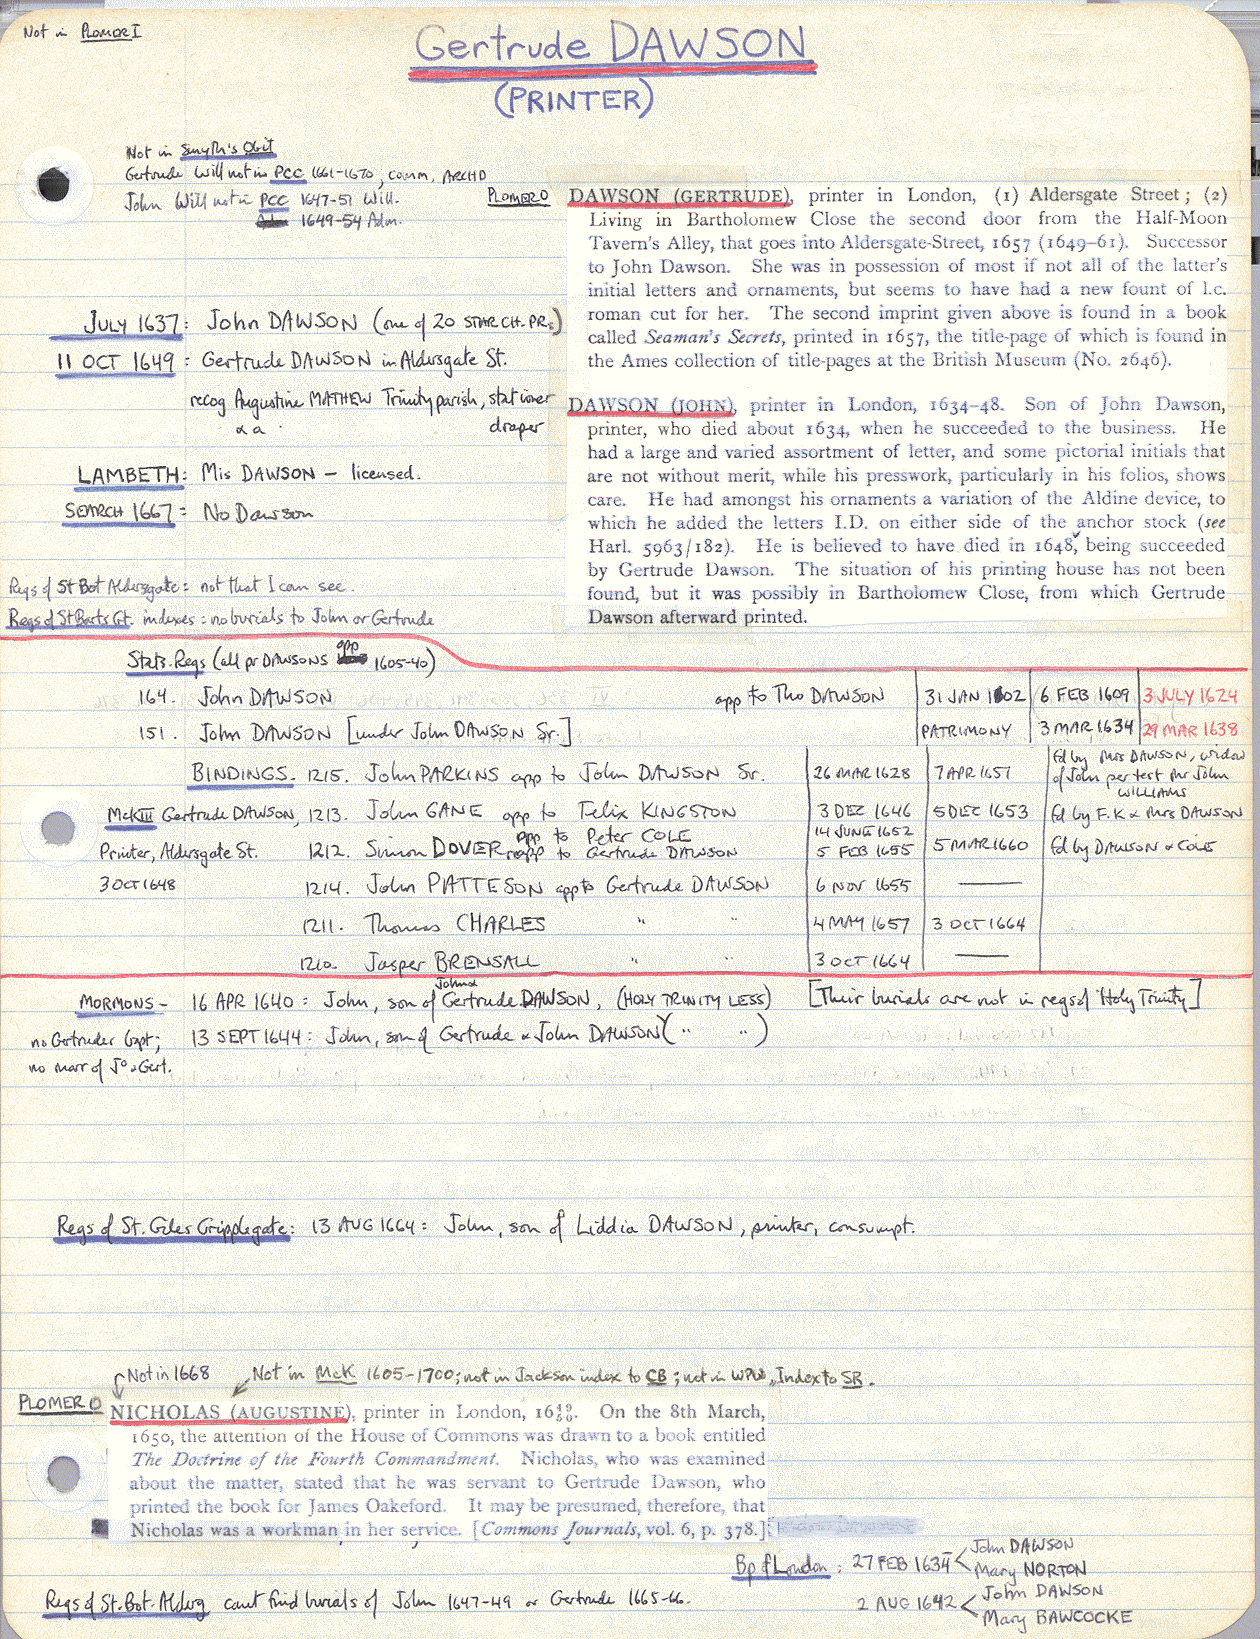 Not in PLOMER I
Gertrude DAWSON
(PRINTER)
Not in Smyth's Obit
Gertrude Will not in PCC 1661-1670, comm, ARCHD
John Will not in PCC 1647-51 Will.
1649-54 Adm.
PLOMER O
DAWSON (GERTRUDE), printer in London, (1) Aldersgate Street; (2)
Living in Bartholomew Close the second door from the Half-Moon
Tavern's Alley, that goes into Aldersgate-Street, 1657 (1649–61). Successor
to John Dawson. She was in possession of most if not all of the latter's
initial letters and ornaments, but seems to have had a new fount of l.c.
roman cut for her. The second imprint given above is found in a book
called Seaman's Secrets, printed in 1657, the title-page of which is found in
the Ames collection of title-pages at the British Museum (No. 2646).
DAWSON (JOHN), printer in London, 1634–48. Son of John Dawson,
printer, who died about 1634, when he succeeded to the business. He
had a large and varied assortment of letter, and some pictorial initials that
are not without merit, while his presswork, particularly in his folios, shows
care. He had amongst his ornaments a variation of the Aldine device, to
which he added the letters I.D. on either side of the anchor stock (see
Harl. 5963/182). He is believed to have died in 1648, being succeeded
by Gertrude Dawson. The situation of his printing house has not been
found, but it was possibly in Bartholomew Close, from which Gertrude
Dawson afterward printed.
JULY 1637: John DAWSON (one of 20 STAR CH. PRs.)
11 OCT 1649: Gertrude DAWSON in Aldersgate St.
recog Augustine MATHEW Trinity parish, stationer
draper
LAMBETH: Mis DAWSON – licensed.
SEARCH 1667: No Dawson
Regs of St Bot Aldersgate: not that I can see.
Regs of St Barts Gt. indexes: no burials to John or Gertrude
Stats. Regs (all pr DAWSONS app 1605-40)
164. John DAWSON app to Tho DAWSON 31 JAN 1602 6 FEB 1609 3 JULY 1624
151. John DAWSON [under John DAWSON Sr.] PATRIMONY 3 MAR 1634 29 MAR 1638
BINDINGS. 1215. John PARKINS app to John DAWSON Sr. 26 MAR 1628 7 APR 1651 fd by Mrs DAWSON, widow
of John per test Mr John
WILLIAMS
McK III Gertrude DAWSON, 1213. John GANE app to Felix KINGSTON 3 DEC 1646 5 DEC 1653 fd by F.K & Mrs DAWSON
Printer, Aldersgate St. 1212. Simon DOVER app to Peter COLE 14 JUNE 1652
reapp to Gertrude DAWSON 5 FEB 1655 5 MAR 1660 fd by DAWSON & COLE
3 OCT 1648 1214. John PATTESON app to Gertrude DAWSON 6 NOV 1655 ———
1211. Thomas CHARLES " " 4 MAY 1657 3 OCT 1664
1210. Jasper BRENSALL " " 3 OCT 1664 ———
MORMONS – 16 APR 1640: John, son of John & Gertrude DAWSON, (HOLY TRINITY LESS) [Their burials are not in regs of 'Holy Trinity]
no Gertruder bapt; 13 SEPT 1644: John, son of Gertrude & John DAWSON (" ")
no marr of Jo & Gert.
Regs of St. Giles Cripplegate: 13 AUG 1664: John, son of Liddia DAWSON, printer, consumpt.
Not in 1668 Not in McK 1605-1700; not in Jackson index to CB; not in WPW, Index to SR.
PLOMER O
NICHOLAS (AUGUSTINE), printer in London, 16 49/50. On the 8th March,
1650, the attention of the House of Commons was drawn to a book entitled
The Doctrine of the Fourth Commandment. Nicholas, who was examined
about the matter, stated that he was servant to Gertrude Dawson, who
printed the book for James Oakeford. It may be presumed, therefore, that
Nicholas was a workman in her service. [Commons Journals, vol. 6, p. 378.]
Bp of London: 27 FEB 1634 < John DAWSON
Mary NORTON
2 AUG 1642 < John DAWSON
Mary BAWCOCKE
Regs of St. Bot. Alderg cant find burials of John 1647-49 or Gertrude 1665-66.